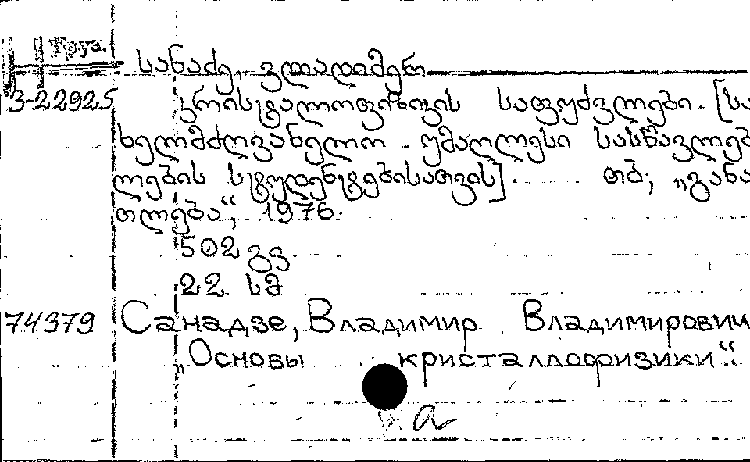 Груз.
სანაძე, ვლადიმერ
3-22925 კრისტალოფიზიკის საფუძვლები. [სა
ხელმძღვანელო უმაღლესი სასწავლებ
ლების სტუდენტებისათვის]. თბ; „განა
თლება“, 1976.
502 გვ
22 სმ
74379 Санадзе, Владимир Владимирович
„Основы кристаллофизики“.